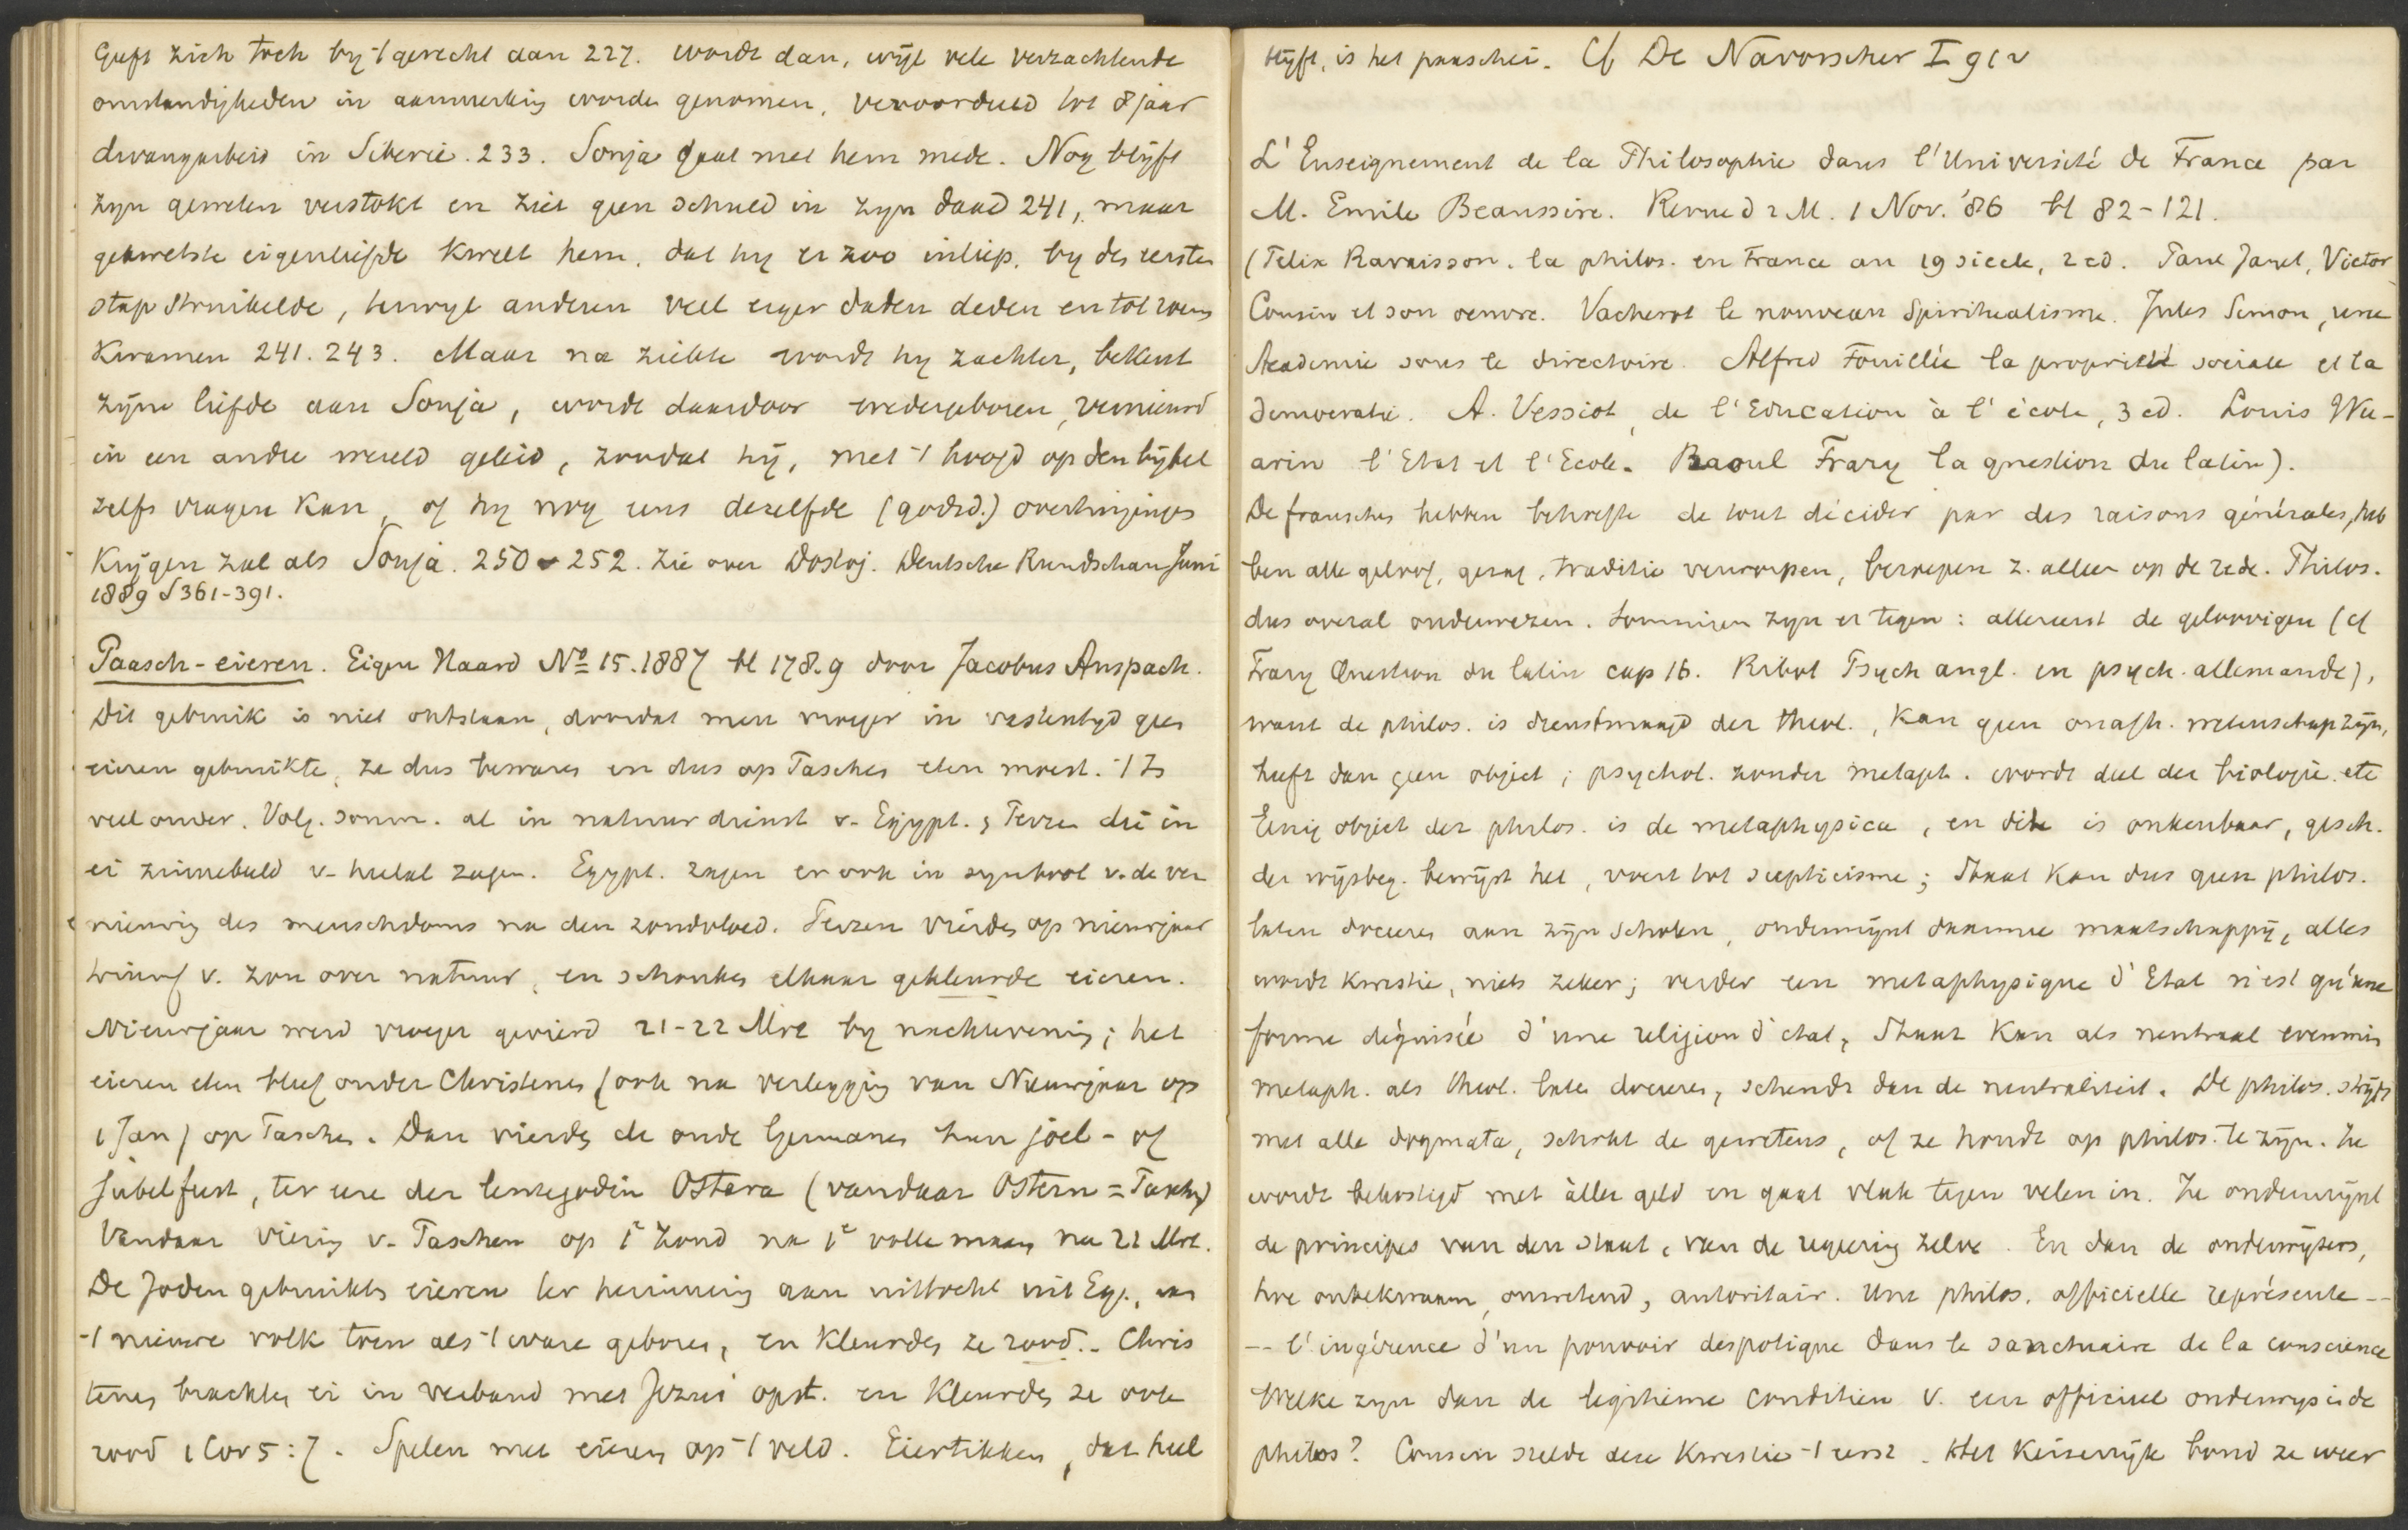 Geeft zich toch by 't gerecht aan 227. wordt dan, wijl vele verzachtende
omstandigheden in aanmerking worden genomen, veroordeeld tot 8 jaar
dwangarbeid in Siberië. 233. Sonja gaat met hem mede. Nog blijft
zyn geweten verstokt en ziet geen schuld in zyn daad 241, maar
gekwetste eigenliefde kwelt hem, dat hy er zoo inliep, by de eerste
stap struikelde, terwyl anderen veel erger daden deden en tot roem
kwamen 241. 243. Maar na ziekte wordt hy zachter, bekent
zijne liefde aan Sonja, wordt daardoor wedergeboren, vernieuwd
in een andre wereld geleid, zoodat hij, met 't hoofd op den bijbel
zelfs vragen kan, of hy nog eens dezelfde (godsd.) overtuigingen
Krijgen zal als Sonja. 250 252. Zie over Dostoj. Deutsche Rundschau Juni
1889 S 361-391.
Paasch-eieren. Eigen Haard No 15. 1887 bl 178.9 door Jacobus Anspach.
Dit gebruik is niet ontstaan, doordat men vroeger in vastentyd geen
eieren gebruikte, ze dus bewaren en dus op Paschen eten moest. 't Is
veel ouder. Volg. somm. al in natuurdienst v. Egypt. & Perzen die in
ei zinnebeeld v. heelal zagen. Egypt. zagen er ook in symbool v. de ver
nieuwing des menschdoms na den zondvloed. Perzen vierden op nieuwjaar
triumf v. zon over natuur, en schonken elkaar gekleurde eieren.
Nieuwjaar werd vroeger gevierd 21-22 Mrt by nachtevening; het
eieren eten bleef onder Christenen (ook na verlegging van Nieuwjaar op
1 Jan) op Paschen. Dan vierden de oude Germanen hun joel- of
Jubelfeest, ter eere der lentegodin Ostara (vandaar Ostern = Paschen)
Vandaar viering v. Paschen op 1e Zond na 1e volle maan na 21 Mrt.
De Joden gebruikten eieren ter herinnering aan uittocht uit Eg.,
't nieuwe volk toen als 't ware geboren, en kleurden ze rood. Chris
tenen brachten ei in verband met Jezus' opst. en kleurden ze ook
rood 1 Cor 5:7. Spelen met eieren op 't veld. Eiertikken, dat heel
blijft, is het paaschei. Cf De Navorscher I
L'Enseignement de la Philosophie dans l'Université de France par
M. Emile Beaussire. Revue d 2 M. 1 Nov. '86 bl 82-121.
(Felix Ravaisson. la philos. en France au 19 siecle, 2 ed. Paul Janet, Victor
Cousin et son oeuvre. Vacherot le nouveau Spiritualisme. Jules Simon, une
Academie sous le directoire. Alfred Fouillée la propriété sociale et la
democratie. A. Vessiot, de l'Education à l'école, 3 ed. Louis Wu-
arin l'Etat et l'Ecole. Raoul Frary la question du latin).
De franschen hebben behoefte de tout décider par des raisons générales, heb
ben alle geloof, gezag, traditie verworpen, beroepen z. alleen op de rede. Philos.
dus overal onderwezen. Sommigen zyn er tegen: allereerst de geloovigen (cf
Frary Question du latin cap 16. Ribot Psych angl. en psych. allemande),
want de philos. is dienstmaagd der theol., kan geen onafh. wetenschap zijn,
heeft dan geen object; psychol. zonder metaph. wordt deel der biologie. etc
Eenig object der philos. is de metaphysica, en die is onkenbaar, gesch.
der wijsbeg. bewijst het, voert tot scepticisme; Staat kan dus geen philos.
laten doceren aan zijn scholen, ondermijnt daarmee maatschappij, alles
wordt kwestie, niets zeker; verder een metaphysique d'Etat n'est qu'une
forme déguisée d'une religion d'état, Staat kan als neutraal evenmin
metaph. als theol. laten doceren, schendt dan de neutraliteit. De philos. strijdt
met alle dogmata, schokt de gewetens, of ze houdt op philos. te zijn. Ze
wordt bekostigd met aller geld en gaat vlak tegen velen in. Ze ondermijnt
de principes van den staat, van de regeering zelve. En dan de onderwijzers,
hoe onbekwaam, onwetend, autoritair. Une philos. officielle représente --
-- l'ingérence d'un pouvoir despotique dans le sanctuaire de la conscience
Welke zyn dan de legitieme conditien v. een officieel onderwys i de
philos? Cousin stelde deze kwestie 't eerst. Het Keizerrijk bond ze weer